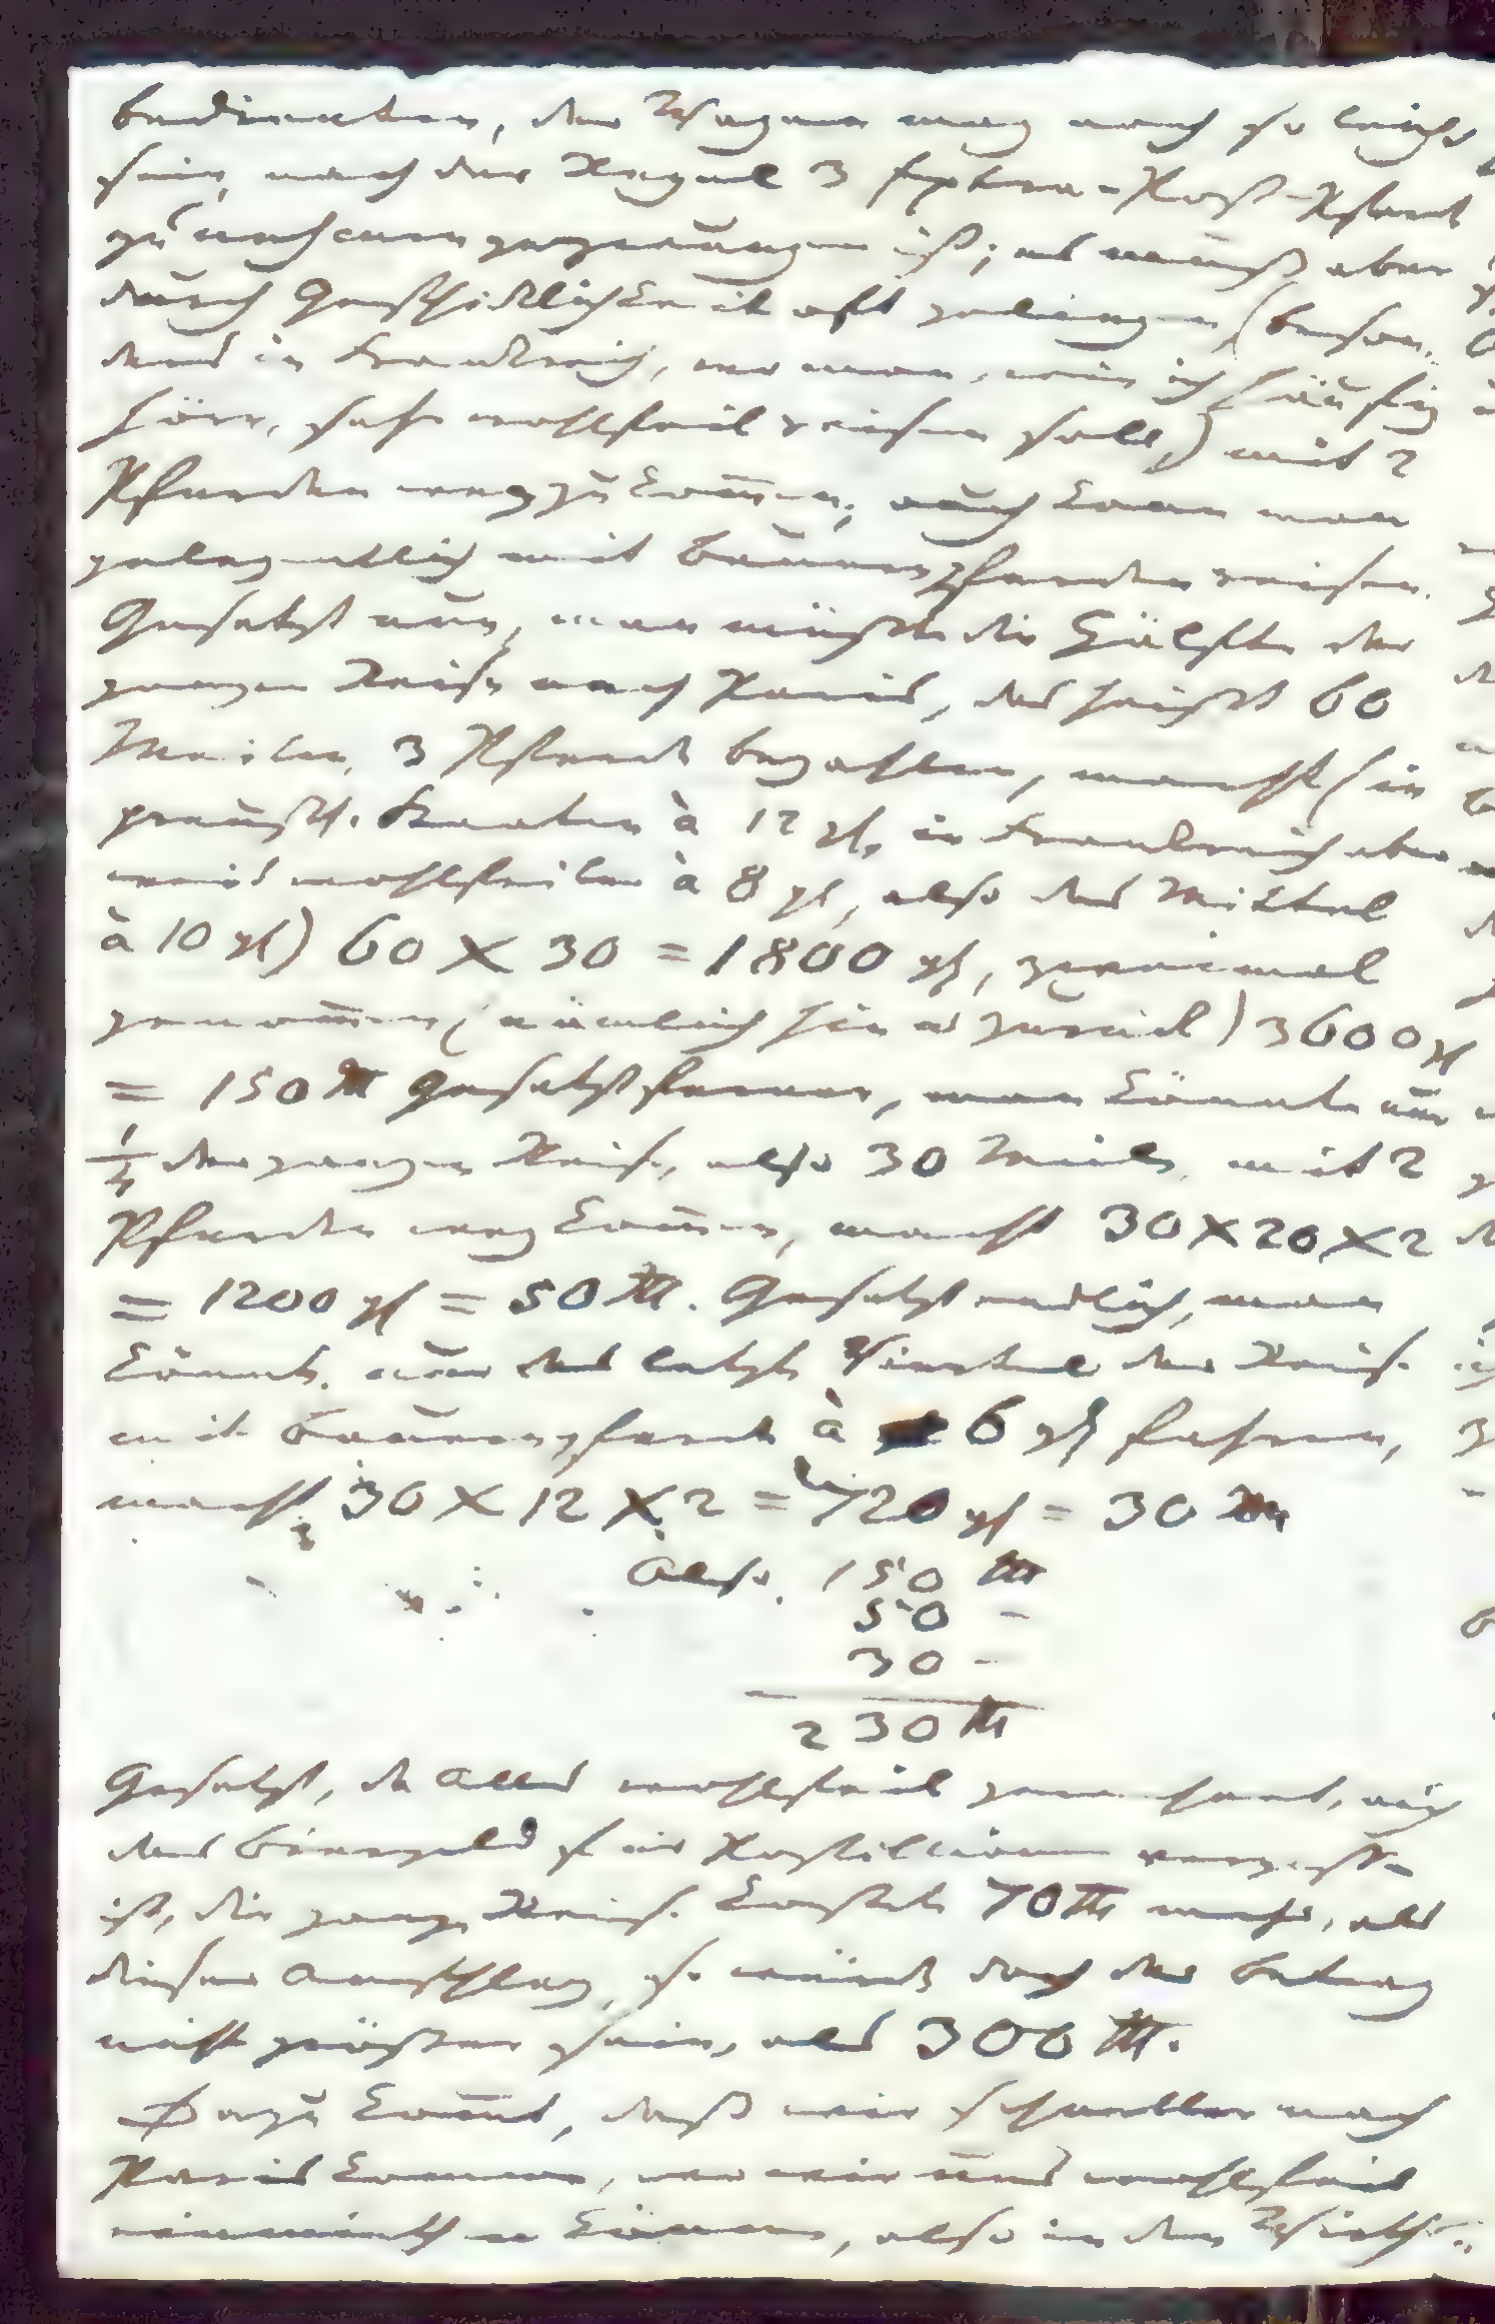 bedienten, der Wagen mag noch so leicht
sein, nach der Regel 3 Extra-Post-Pferde
zu nehmen gezwungen ist; es muß aber
durch Geschicklichkeit oft gelingen (beson-
ders in Frankreich, wo man, wie ich häufig
höre, sehr wohlfeil reisen soll,) mit 2
Pferden wegzukom̄en; auch kann man
gelegentlich mit Bauernpferden reisen.
Gesetzt nun, man müßte die Hälfte der
ganzen Reise nach Paris, das heißt 60
Meilen, 3 Pferde bezahlen, macht (in
preußsch. Staaten à 12 gl, in Frankreich aber
weit wohlfeiler à 8 gl, also das Mittel
à 10 gl) 60 X 30 = 1800 gl, zweimal
genom̄en (nämlich hin u zurück) 3600 gl
= 150 rth Gesetzt ferner, man könnte nur
1/4 der ganzen Reise, also 30 Meilen, mit 2
Pferden wegkom̄en, macht 30 X 20 X 2
= 1200 gl = 50 rth. Gesetzt endlich, man
könnte nur das letzte Viertel der Reise
mit Bauernpferde à 6 gl fahren,
macht 30 X 12 X 2 = 720 gl = 30 rth
Also 150 rth
50 -
30 -
230 rth
Gesetzt, da Alles wohlfeil gerechnet, auch
das Biergeld für Postillione vergessen
ist, die ganze Reise kostete 70 rth mehr, als
dieser Anschlag, so würde doch der Betrag
nicht größer sein, als 300 rth.
Dazu kom̄t, daß wir schneller nach
Paris kommen, wo wir uns wohlfeil
einmiethen können, also in den Wirths-